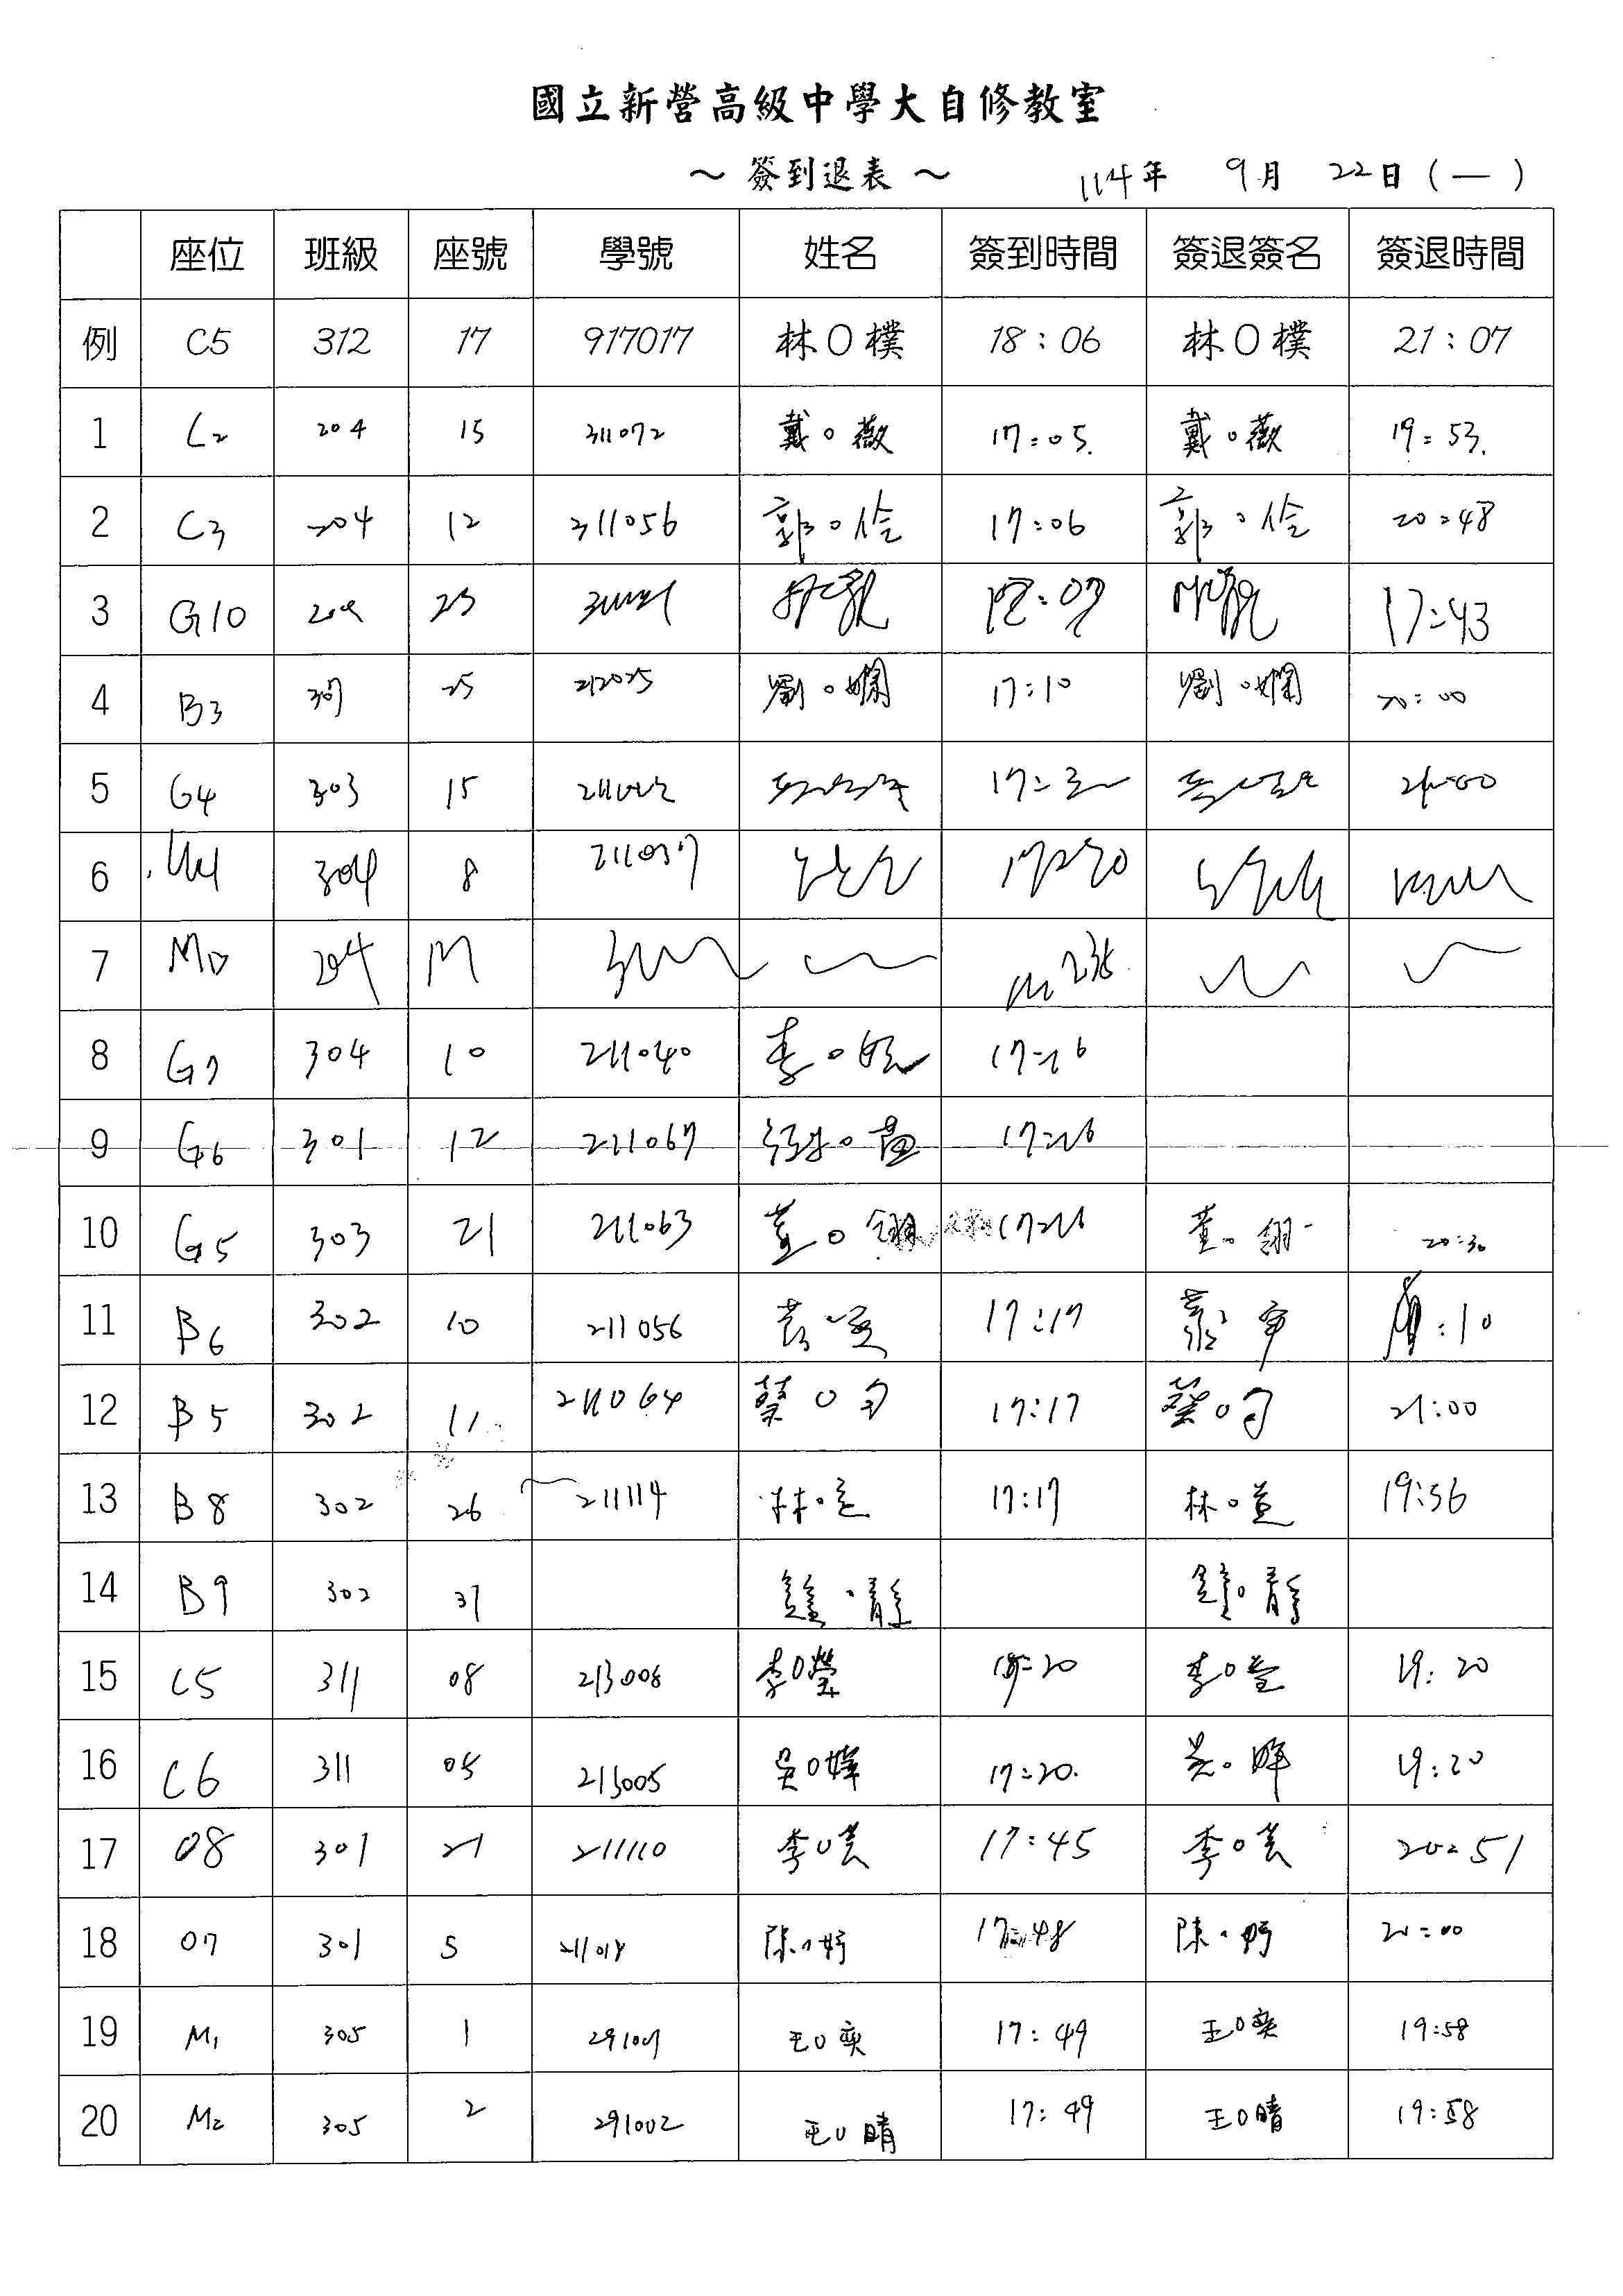 國立新營高級中學大自修教室
～ 簽到退表 ～ 114年 9月 22日 (一)
座位 班級 座號 學號 姓名 簽到時間 簽退簽名 簽退時間
例 C5 312 17 917017 林O樸 18：06 林O樸 21：07
1 C2 204 15 311072 戴o薇 17:05. 戴o薇 19:53.
2 C3 204 12 311056 郭o伶 17:06 郭o伶 20:48
3 G10 209 23 17:43
4 B3 307 25 212025 劉o嫻 17:10 劉o嫻 20:00
5 G4 303 15 21:00
6 304 8 211037
7 204
8 G7 304 10 211040 李o 17:16
9 G6 301 12 211067 17:16
10 G5 303 21 211063 董o翎 17:16 董o翎 20:30
11 B6 302 10 211056 17:17 :10
12 B5 302 11 211064 蔡O勻 17:17 蔡o勻 21:00
13 B8 302 26 211114 林o萱 17:17 林o萱 19:56
14 B9 302 31 鐘o靜 鐘o靜
15 C5 311 08 213008 李O瑩 :20 李O瑩 19:20
16 C6 311 05 213005 吳O嬅 17:20. 吳o 19:20
17 O8 301 21 211110 李O芸 17:45 李O芸 20:51
18 O7 301 5 211018 陳o妤 17:48 陳o妤 21:00
19 M1 305 1 291001 王O奕 17:49 王O奕 19:58
20 M2 305 2 291002 王O晴 17:49 王O晴 19:58